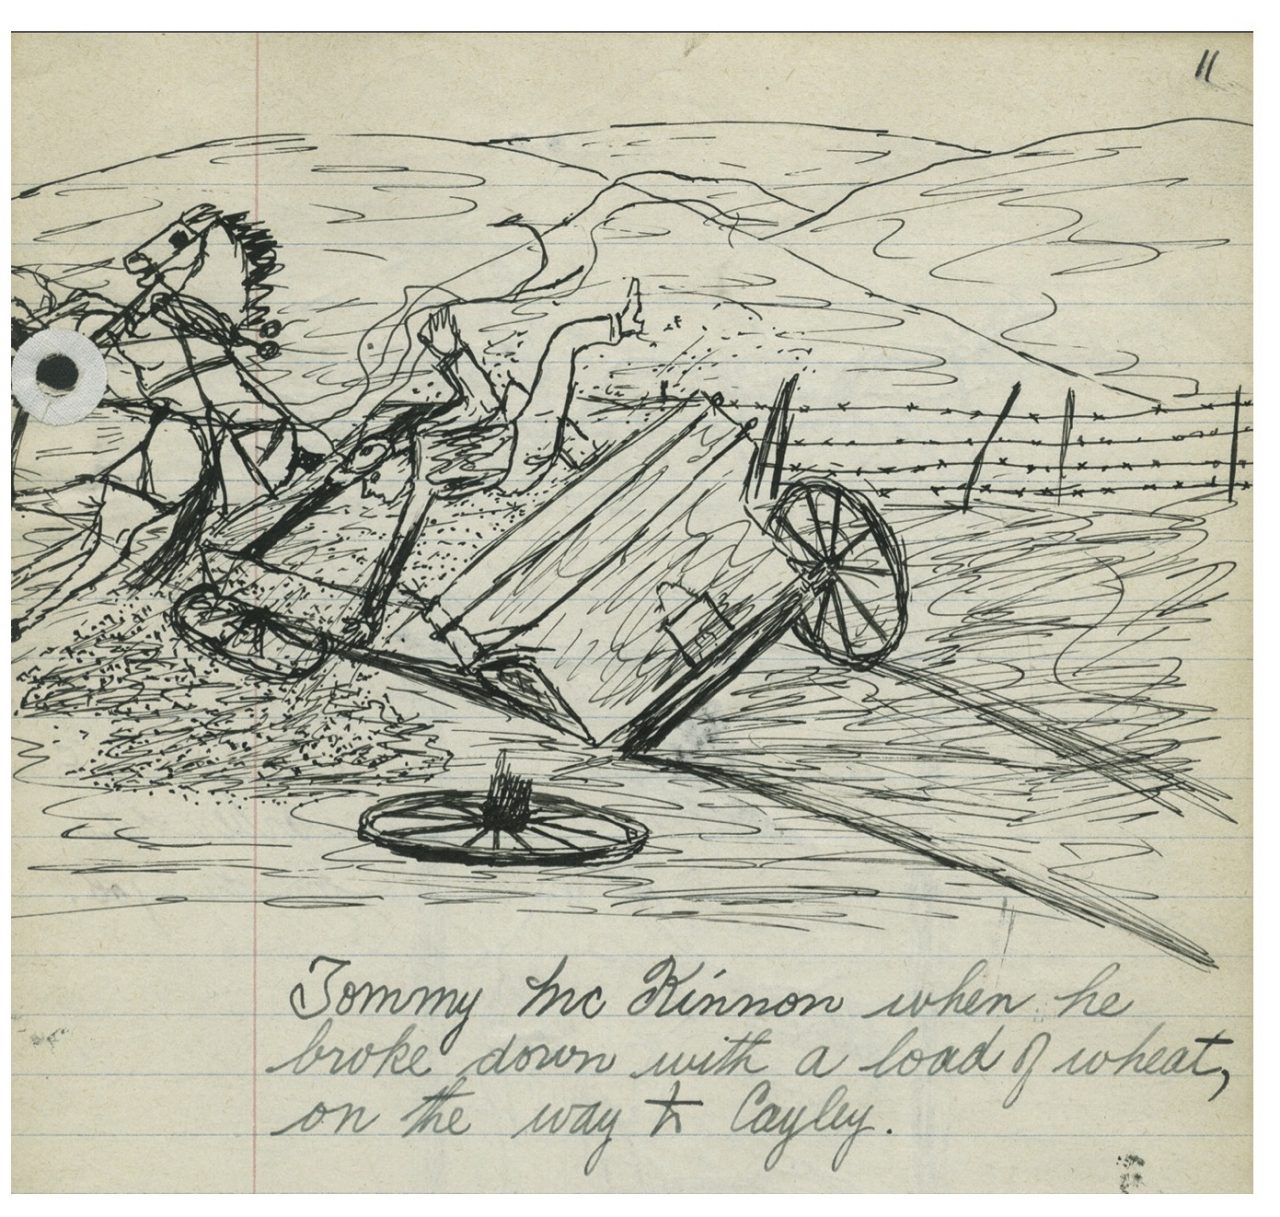 11
Tommy Mc Kinnon when he
broke down with a load of wheat,
on the way to Cayley.